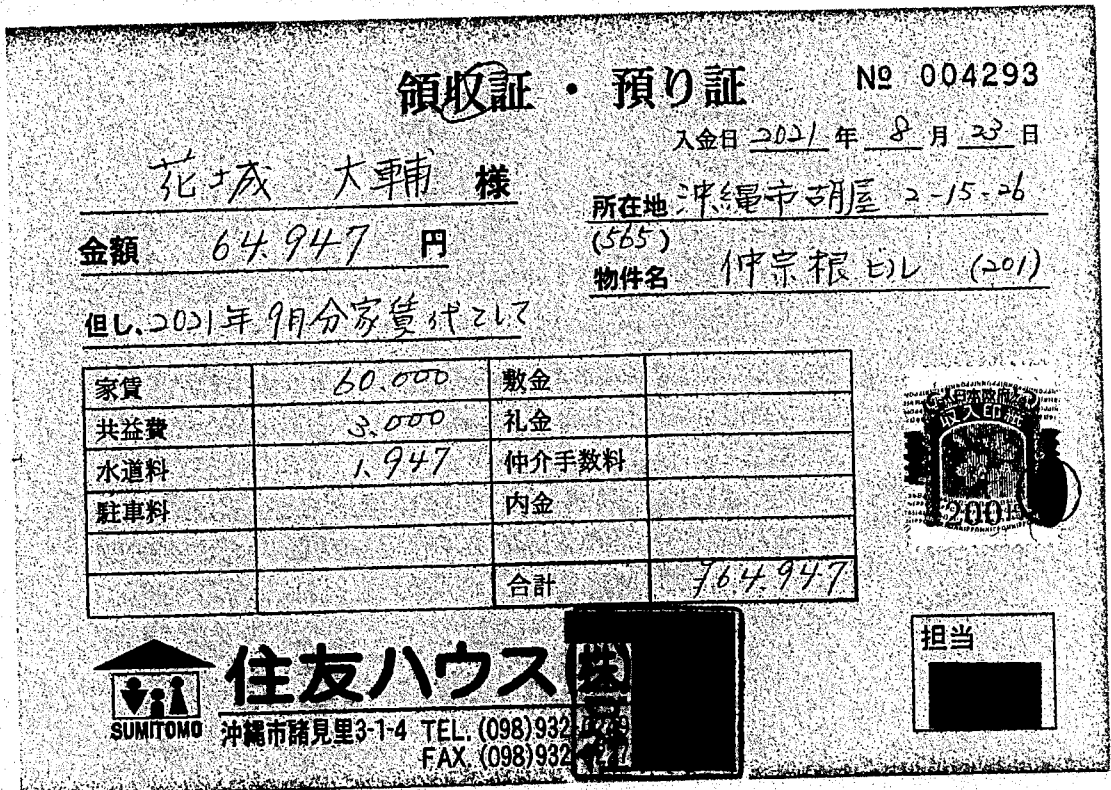 領収証・預り証
№ 004293
入金日 2021 年 8 月 23 日
花城 大輔 様
所在地 沖縄市胡屋 2-15-26
金額 64.947 円
(565)
物件名 仲宗根ビル (201)
但し、2021年9月分家賃代として
家賃 60.000 敷金
共益費 3.000 礼金
水道料 1.947 仲介手数料
駐車料 内金
合計 ¥64.947
収入印紙
200円
担当
住友ハウス(株)
SUMITOMO
沖縄市諸見里3-1-4 TEL.(098)932
FAX.(098)932